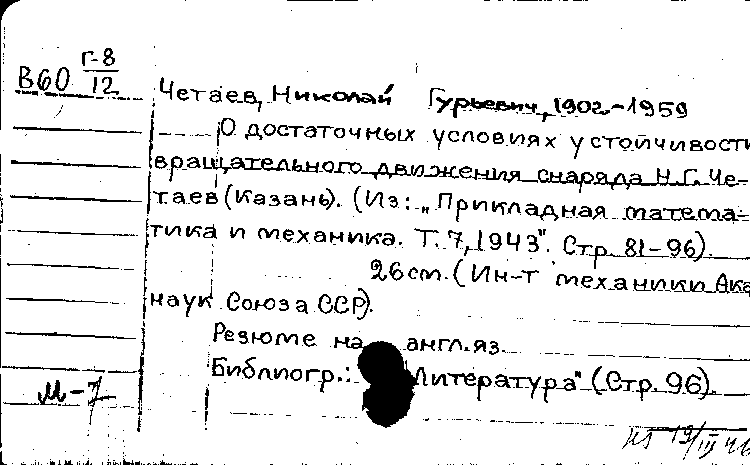 В60 Г-8/12
Четаев, Николай Гурьевич, 1902-1959
О достаточных условиях устойчивости
вращательного движения снаряда Н.Г. Че-
таев (Казань). (Из: „Прикладная матема-
тика и механика. Т. 7, 1943". Стр. 81-96).
26 cm. (Ин-т механики Ака
наук Союза ССР).
Резюме на англ. яз.
Библиогр.: Литература" (Стр. 96).
М-7
19/III 46